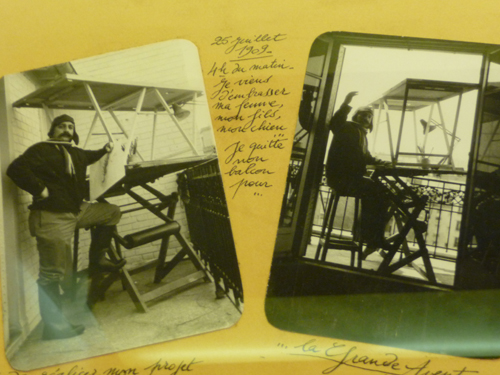 25 juillet
1909 -
4h du matin -
Je viens
d'embrasser
ma femme,
mon fils,
mon chien
Je quitte
mon
balcon
pour
...
réaliser mon projet
... la Grande